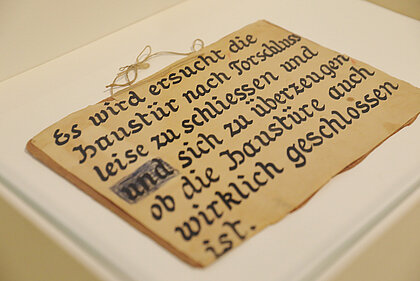 Es wird ersucht die
Haustür nach Torschluss
leise zu schliessen und
und sich zu überzeugen
ob die Haustüre auch
wirklich geschlossen
ist.